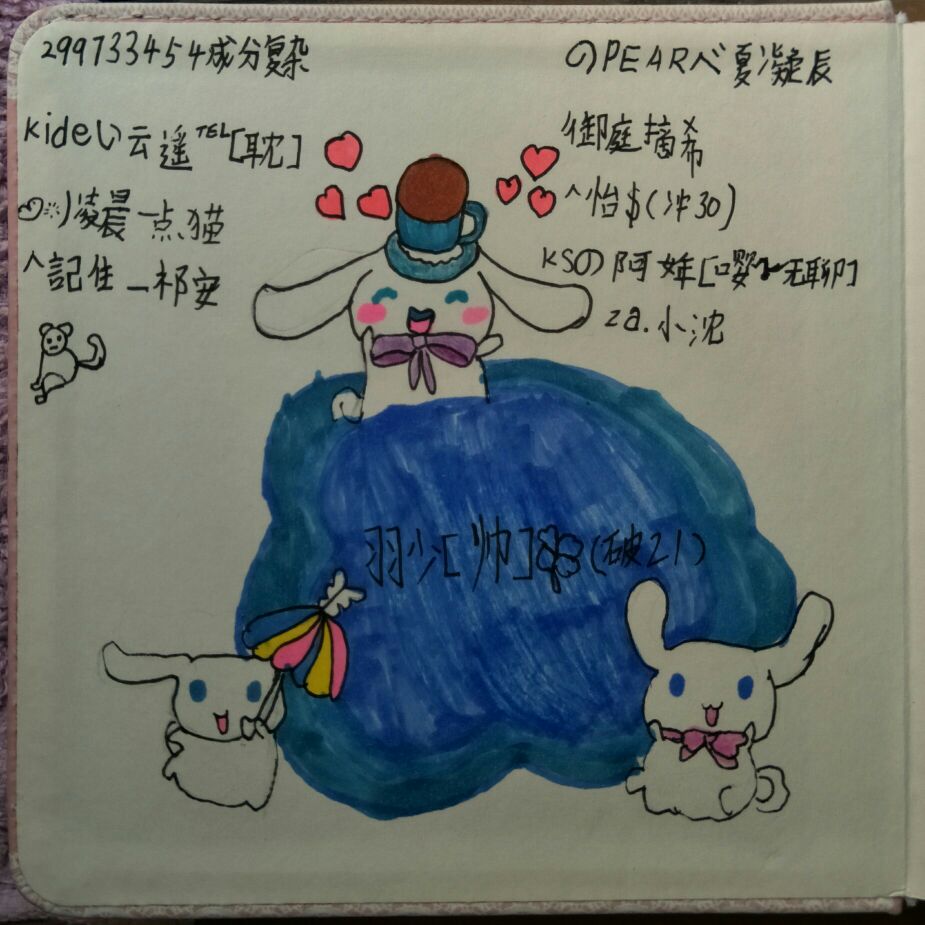 299733454成分复杂
のPEARべ夏凝辰
kideい云遥TEL[耽]
御庭摘希
凌晨一点猫
^怡$(冲30)
^記住_祁安
KSの阿婞[嘤~无聊]
za.小沈
羽尐[帅](破21)